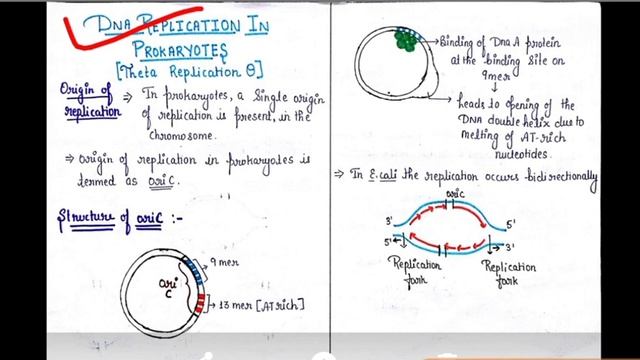 DNA REPLICATION IN
PROKARYOTES
[Theta Replication θ]
Origin of
replication
⇒ In prokaryotes, a single origin
of replication is present, in the
chromosome.
⇒ origin of replication in prokaryotes is
termed as oriC.
Structure of oriC :-
9 mer
ori
C
13 mer [AT rich]
Binding of Dna A protein
at the binding site on
9mer
↓
leads to opening of the
DNA double helix due to
melting of AT-rich
nucleotides.
⇒ In E.coli the replication occurs bidirectionally
oriC
3' 5'
5' 3'
Replication
fork
Replication
fork